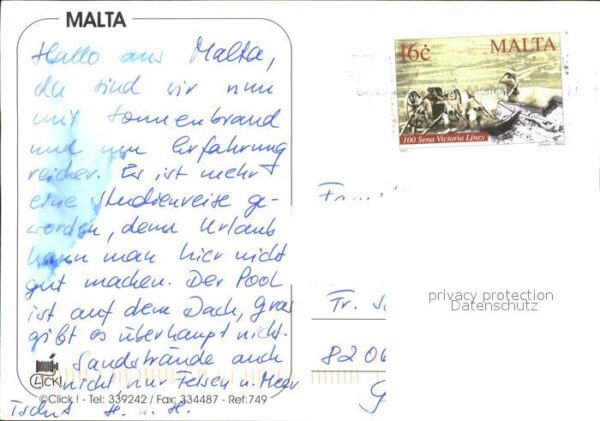 MALTA
Hallo aus Malta,
da sind wir nun
mit Sonnenbrand
und um Erfahrung
reicher. Es ist mehr
eine Studienreise ge-
worden, denn Urlaub
kann man hier nicht
gut machen. Der Pool
ist auf dem Dach, Gras
gibt es überhaupt nicht.
Sandstrände auch
nicht, nur Felsen u. Meer
Tschüß H. u. H.
CLICK!
©Click ! - Tel: 339242 / Fax: 334487 - Ref:749
16c MALTA
100 Sena Victoria Lines
Fr.
8206
privacy protection
Datenschutz